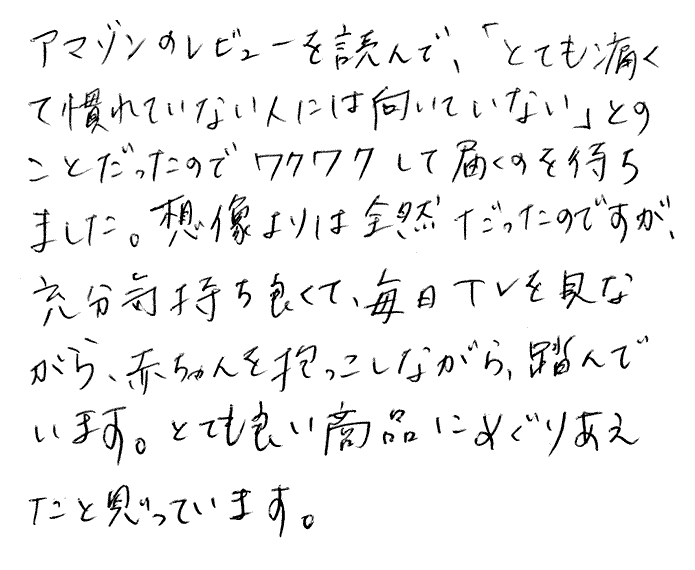 アマゾンのレビューを読んで、「とても痛く
て慣れていない人には向いていない」との
ことだったのでワクワクして届くのを待ち
ました。想像よりは全然だったのですが、
充分気持ち良くて、毎日TVを見な
がら、赤ちゃんを抱っこしながら、踏んで
います。とても良い商品にめぐりあえ
たと思っています。